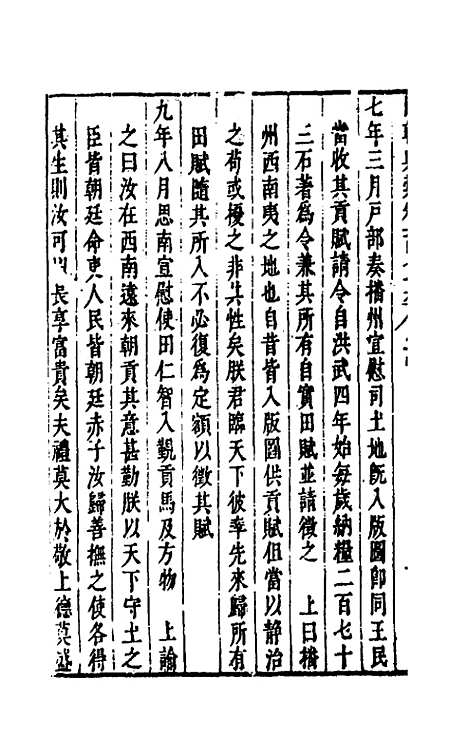 七年三月戶部奏播州宣慰司土地旣入版圖卽同王民
當收其貢賦請令自洪武四年始每歲納糧二百七十
三石著爲令兼其所有自實田賦並請徵之　上曰播
州西南夷之地也自昔皆入版圖供貢賦但當以靜治
之苟或擾之非其性矣朕君臨天下彼率先來歸所有
田賦隨其所入不必復爲定額以徵其賦
九年八月思南宣慰使田仁智入覲貢馬及方物　上諭
之曰汝在西南遠來朝貢其意甚勤朕以天下守土之
臣皆朝廷命吏人民皆朝廷赤子汝歸善撫之使各得
其生則汝可以長享富貴矣夫禮莫大於敬上德莫盛